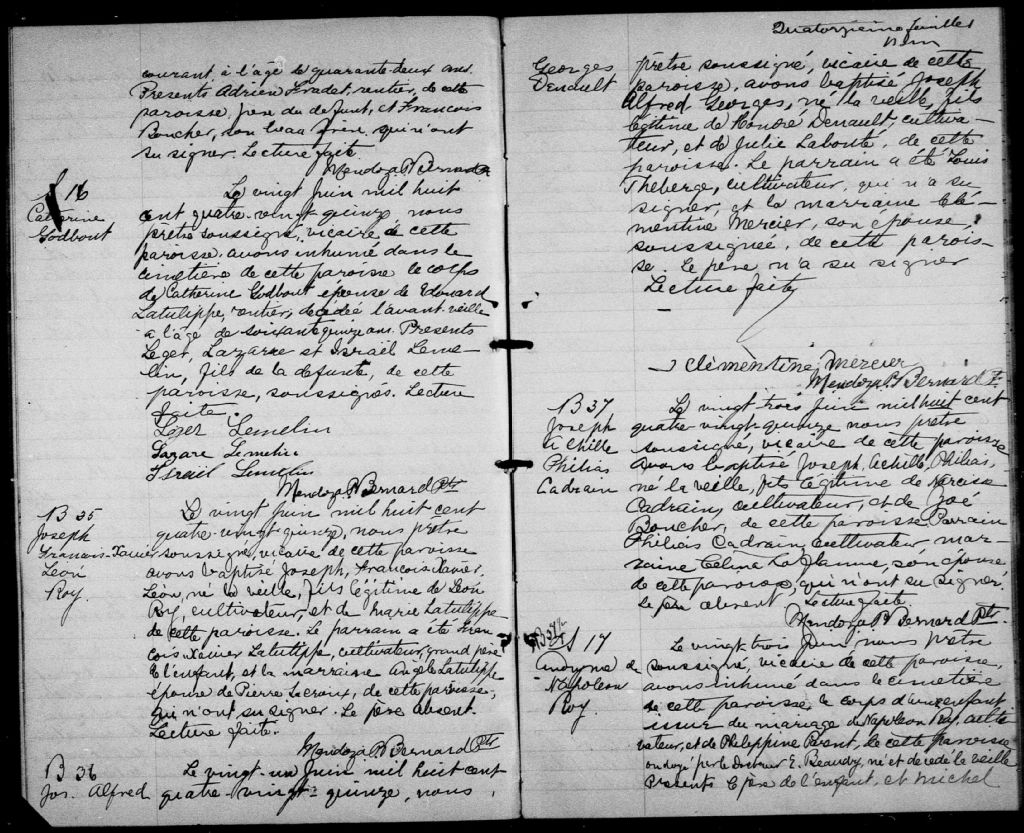 courant à l'âge de quarante-deux ans.
Présents Adrien Fradet, rentier, de cette
paroisse, père du defunt, et Francois
Boucher, son beau frère, qui n'ont
su signer. Lecture faite.
Mendoza P. Bernard
S 16
Catherine
Godbout
Le vingt Juin mil huit
cent quatre-vingt-quinze, nous
prêtre soussigné, vicaire de cette
paroisse avons inhumé dans le
cimetière de cette paroisse le corps
de Catherine Godbout épouse de Edouard
Latulippe, rentier, décédée l'avant-veille
à l'âge de soixante quinze ans. Presents
Leger, Lazarre et Israël Leme-
lin, fils de la defunte, de cette
paroisse, soussignés. Lecture
faite.
Leger Lemelin
Lazare Lemelin
Israël Lemelin
Mendoza P. Bernard Ptre
B 35
Joseph
Francois-Xavier
Léon
Roy.
Le vingt Juin mil huit cent
quatre-vingt quinze, nous prêtre
soussigné, vicaire de cette paroisse
avons baptisé Joseph, François Xavier,
Léon, né la veille, fils légitime de Léon
Roy, cultivateur, et de Marie Latulippe
de cette paroisse. Le parrain a été Fran-
cois Xavier Latulippe, cultivateur, grand père
de l'enfant, et la marraine Angèle Latulippe
épouse de Pierre Lacroix, de cette paroisse,
qui n'ont su signer. Le père absent.
Lecture faite.
Mendoza P. Bernard Ptr
B 36
Jos. Alfred
Le vingt-un Juin mil huit cent
quatre-vingt-quinze, nous,
Quatorzieme feuillet
Georges
Denault
prêtre soussigné, vicaire de cette
paroisse, avons baptisé Joseph
Alfred Georges, né la veille, fils
légitime de Honoré Denault, cultiva-
teur, et de Julie Labonté, de cette
paroisse. Le parrain a été Louis
Theberge, cultivateur, qui n'a su
signer, et la marraine Clé-
mentine Mercier, son épouse,
soussignée, de cette parois-
se. Le père n'a su signer
Lecture faite
Clémentine Mercier
Mendoza P. Bernard Pt.
B 37
Joseph
Achille
Philias
Cadrain
Le vingt trois Juin mil huit cent
quatre-vingt-quinze nous prêtre
soussigné, vicaire de cette paroisse
avons baptisé Joseph, Achille, Philias,
né la veille, fils légitime de Narcisse
Cadrain, cultivateur, et de Zoé
Boucher, de cette paroisse. Parrain
Philias Cadrain, cultivateur, mar-
raine Celina La Flamme, son épouse
de cette paroisse, qui n'ont su signer.
Le père absent. Lecture faite.
Mendoza P. Bernard Ptr
S 17
Anonyme de
Napoleon
Roy
Le vingt trois Juin nous prêtre
soussigné, vicaire de cette paroisse,
avons inhumé dans le cimetière
de cette paroisse, le corps d'un enfant
issu du mariage de Napoléon Roy, culti-
vateur, et de Philippine Parent, de cette paroisse
ondoyé par le Docteur E. Beaudry, né et décédé la veille
Présents le père de l'enfant, et Michel